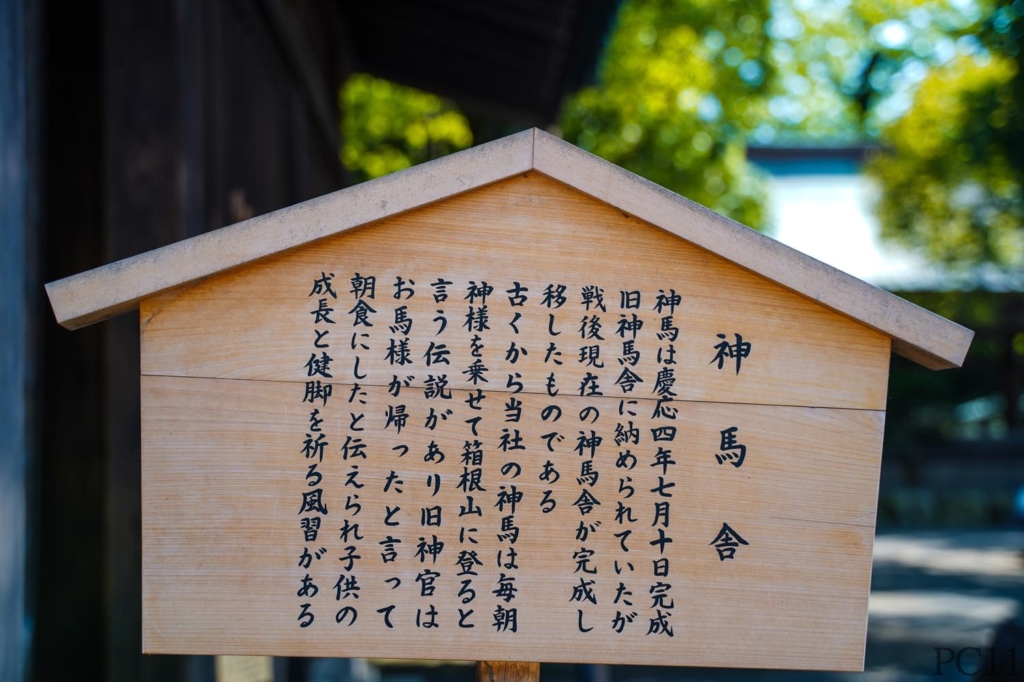 神馬舎
神馬は慶応四年七月十日完成
旧神馬舎に納められていたが
戦後現在の神馬舎が完成し
移したものである
古くから当社の神馬は毎朝
神様を乗せて箱根山に登ると
言う伝説があり旧神官は
お馬様が帰ったと言って
朝食にしたと伝えられ子供の
成長と健脚を祈る風習がある
PC11